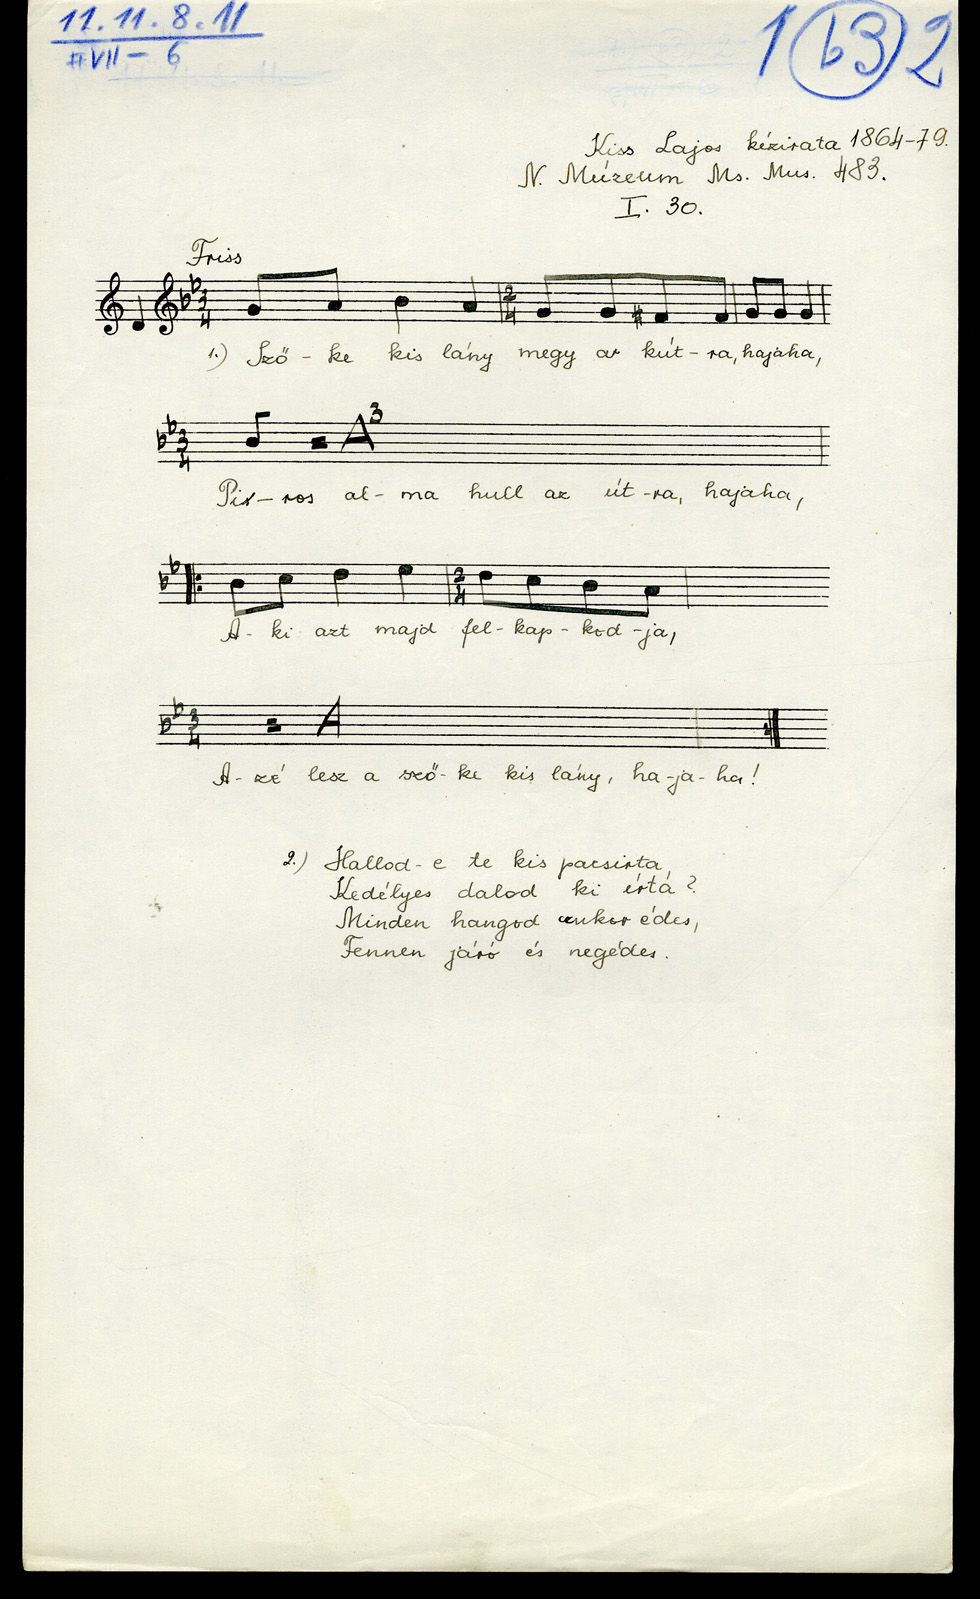 11.11.8.11
#VII - 6
1 b3 2
Kiss Lajos kézirata 1864-79.
N. Múzeum Ms. Mus. 483.
I. 30.
Friss
3 4 2 4
1.) Sző - ke kis lány megy a kút - ra, hajaha,
3 4 A 3
Pi - ros al - ma hull az út - ra, hajaha,
2 4
A - ki azt majd fel - kap - kod - ja,
3 4 A
A - zé lesz a sző - ke kis lány, ha - ja - ha!
2.) Hallod - e te kis pacsirta,
Kedélyes dalod ki írtá?
Minden hangod cukor édes,
Fennen járó és negédes.